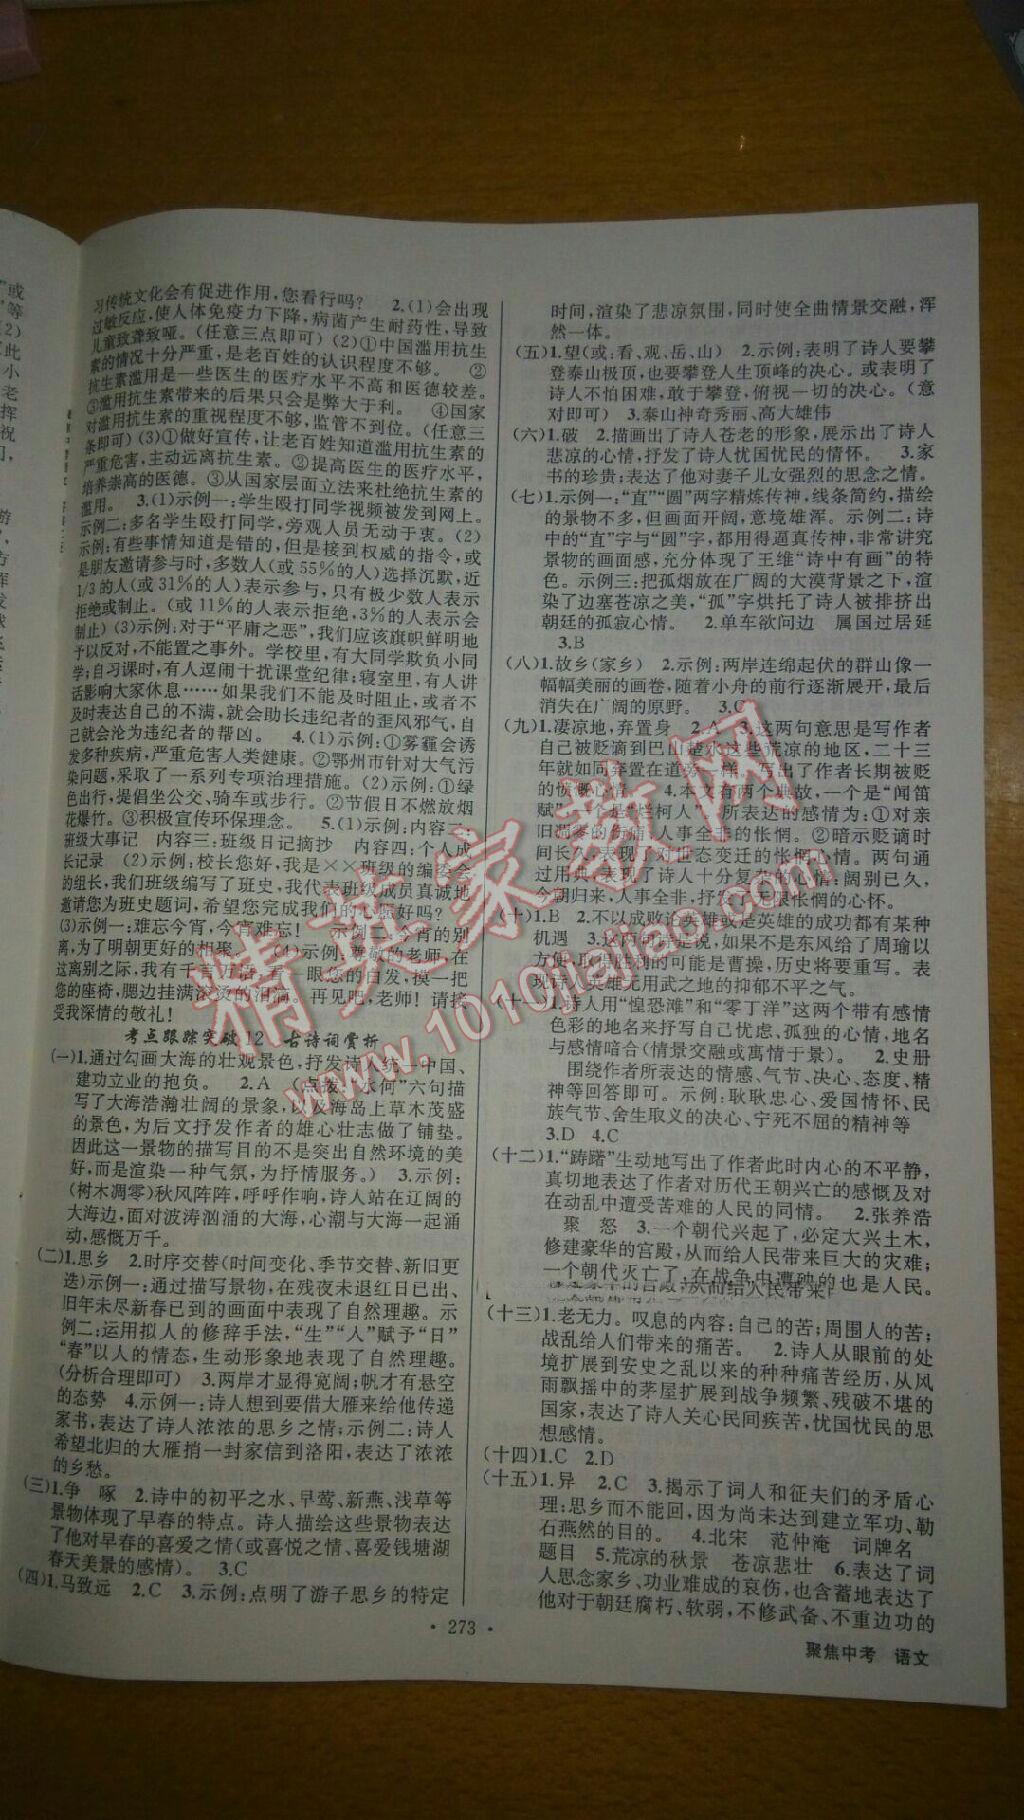 习传统文化会有促进作用,您看行吗?　2.(1)会出现
过敏反应,使人体免疫力下降,病菌产生耐药性,导致
儿童致聋致哑。(任意三点即可)(2)①中国滥用抗生
素的情况十分严重,是老百姓的认识程度不够。　②
抗生素滥用是一些医生的医疗水平不高和医德较差。
③滥用抗生素带来的后果只会是弊大于利。　④国家
对滥用抗生素的重视程度不够,监管不到位。(任意三
条即可)(3)①做好宣传,让老百姓知道滥用抗生素的
严重危害,主动远离抗生素。②提高医生的医疗水平,
培养崇高的医德。③从国家层面立法来杜绝抗生素的
滥用。　3.(1)示例一:学生殴打同学视频被发到网上。
示例二:多名学生殴打同学,旁观人员无动于衷。(2)
示例:有些事情知道是错的,但是接到权威的指令,或
是朋友邀请参与时,多数人(或55%的人)选择沉默,近
1/3的人(或31%的人)表示参与,只有极少数人表示
拒绝或制止。(或11%的人表示拒绝,3%的人表示会
制止)(3)示例:对于“平庸之恶”,我们应该旗帜鲜明地
予以反对,不能置之事外。学校里,有大同学欺负小同
学;自习课时,有人逗闹干扰课堂纪律;寝室里,有人讲
话影响大家休息……如果我们不能及时阻止,或者不
及时表达自己的不满,就会助长违纪者的歪风邪气,自
己就会沦为违纪者的帮凶。　4.(1)示例:①雾霾会诱
发多种疾病,严重危害人类健康。②鄂州市针对大气污
染问题,采取了一系列专项治理措施。(2)示例:①绿
色出行,提倡坐公交、骑车或步行。②节假日不燃放烟
花爆竹。③积极宣传环保理念。　5.(1)示例:内容二:
班级大事记　内容三:班级日记摘抄　内容四:个人成
长记录　(2)示例:校长您好,我是××班级的编委会
的组长,我们班级编写了班史,我代表班级成员真诚地
邀请您为班史题词,希望您完成我们的心愿好吗?
(3)示例一:难忘今宵,今宵难忘!　示例二:今宵的别
离,为了明朝更好的相聚。　(4)示例:尊敬的老师,在
这离别之际,我有千言万语,看一眼您的白发,摸一把
您的座椅,腮边挂满滚烫的泪滴。再见吧,老师!请接
受我深情的敬礼!
考点跟踪突破12　古诗词赏析
(一)1.通过勾画大海的壮观景色,抒发诗人统一中国、
建功立业的抱负。　2.A　(点拨:“水何”六句描
写了大海浩瀚壮阔的景象,以及海岛上草木茂盛
的景色,为后文抒发作者的雄心壮志做了铺垫。
因此这一景物的描写目的不是突出自然环境的美
好,而是渲染一种气氛,为抒情服务。)　3.示例:
(树木凋零)秋风阵阵,呼呼作响,诗人站在辽阔的
大海边,面对波涛汹涌的大海,心潮与大海一起涌
动,感慨万千。
(二)1.思乡　2.时序交替(时间变化、季节交替、新旧更
迭)示例一:通过描写景物,在残夜未退红日已出、
旧年未尽新春已到的画面中表现了自然理趣。示
例二:运用拟人的修辞手法,“生”“入”赋予“日”
“春”以人的情态,生动形象地表现了自然理趣。
(分析合理即可)　3.两岸才显得宽阔;帆才有悬空
的态势　4.示例一:诗人想到要借大雁来给他传递
家书,表达了诗人浓浓的思乡之情;示例二:诗人
希望北归的大雁捎一封家信到洛阳,表达了浓浓
的乡愁。
(三)1.争　啄　2.诗中的初平之水、早莺、新燕、浅草等
景物体现了早春的特点。诗人描绘这些景物表达
了他对早春的喜爱之情(或喜悦之情、喜爱钱塘湖
春天美景的感情)。　3.C
(四)1.马致远　2.C　3.示例:点明了游子思乡的特定
时间,渲染了悲凉氛围,同时使全曲情景交融,浑
然一体。
(五)1.望(或:看、观、岳、山)　2.示例:表明了诗人要攀
登泰山极顶,也要攀登人生顶峰的决心。或表明了
诗人不怕困难,敢于攀登,俯视一切的决心。(意
对即可)　3.泰山神奇秀丽、高大雄伟
(六)1.破　2.描画出了诗人苍老的形象,展示出了诗人
悲凉的心情,抒发了诗人忧国忧民的情怀。　3.家
书的珍贵;表达了他对妻子儿女强烈的思念之情。
(七)1.示例一:“直”“圆”两字精炼传神,线条简约,描绘
的景物不多,但画面开阔,意境雄浑。示例二:诗
中的“直”字与“圆”字,都用得逼真传神,非常讲究
景物的画面感,充分体现了王维“诗中有画”的特
色。示例三:把孤烟放在广阔的大漠背景之下,渲
染了边塞苍凉之美,“孤”字烘托了诗人被排挤出
朝廷的孤寂心情。　2.单车欲问边　属国过居延
3.B
(八)1.故乡(家乡)　2.示例:两岸连绵起伏的群山像一
幅幅美丽的画卷,随着小舟的前行逐渐展开,最后
消失在广阔的原野。　3.C
(九)1.凄凉地,弃置身　2.A　3.这两句意思是写作者
自己被贬谪到巴山楚水这些荒凉的地区,二十三
年就如同弃置在道旁一样。写出了作者长期被贬
的愤慨心情。　4.本文有两个典故,一个是“闻笛
赋”,一个是“烂柯人”。所表达的感情为:①对亲
旧凋零的伤痛,人事全非的怅惘。②暗示贬谪时
间长久,表现了对世态变迁的怅惘心情。两句通
过用典,表现了诗人十分复杂的心情:阔别已久,
今朝归来,人事全非,抒发了无限怅惘的心怀。
(十)1.B　2.不以成败论英雄或是英雄的成功都有某种
机遇　3.这两句诗是说,如果不是东风给了周瑜以
方便,取得胜利的可能是曹操,历史将要重写。表
现诗人英雄无用武之地的抑郁不平之气。
(十一)1.诗人用“惶恐滩”和“零丁洋”这两个带有感情
色彩的地名来抒写自己忧虑、孤独的心情,地名
与感情暗合(情景交融或寓情于景)。　2.史册
围绕作者所表达的情感、气节、决心、态度、精
神等回答即可。示例:耿耿忠心、爱国情怀、民
族气节、舍生取义的决心、宁死不屈的精神等
3.D　4.C
(十二)1.“踌躇”生动地写出了作者此时内心的不平静,
真切地表达了作者对历代王朝兴亡的感慨及对
在动乱中遭受苦难的人民的同情。　2.张养浩
聚　怒　3.一个朝代兴起了,必定大兴土木,
修建豪华的宫殿,从而给人民带来巨大的灾难;
一个朝代灭亡了,在战争中遭殃的也是人民。
(十三)1.老无力。叹息的内容:自己的苦;周围人的苦;
战乱给人们带来的痛苦。　2.诗人从眼前的处
境扩展到安史之乱以来的种种痛苦经历,从风
雨飘摇中的茅屋扩展到战争频繁、残破不堪的
国家,表达了诗人关心民间疾苦,忧国忧民的思
想感情。
(十四)1.C　2.D
(十五)1.异　2.C　3.揭示了词人和征夫们的矛盾心
理:思乡而不能回,因为尚未达到建立军功、勒
石燕然的目的。　4.北宋　范仲淹　词牌名
题目　5.荒凉的秋景　苍凉悲壮　6.表达了词
人思念家乡、功业难成的哀伤,也含蓄地表达了
他对于朝廷腐朽、软弱,不修武备、不重边功的
· 273 ·
聚焦中考　语文
精英家教网
www.1010jiajiao.com